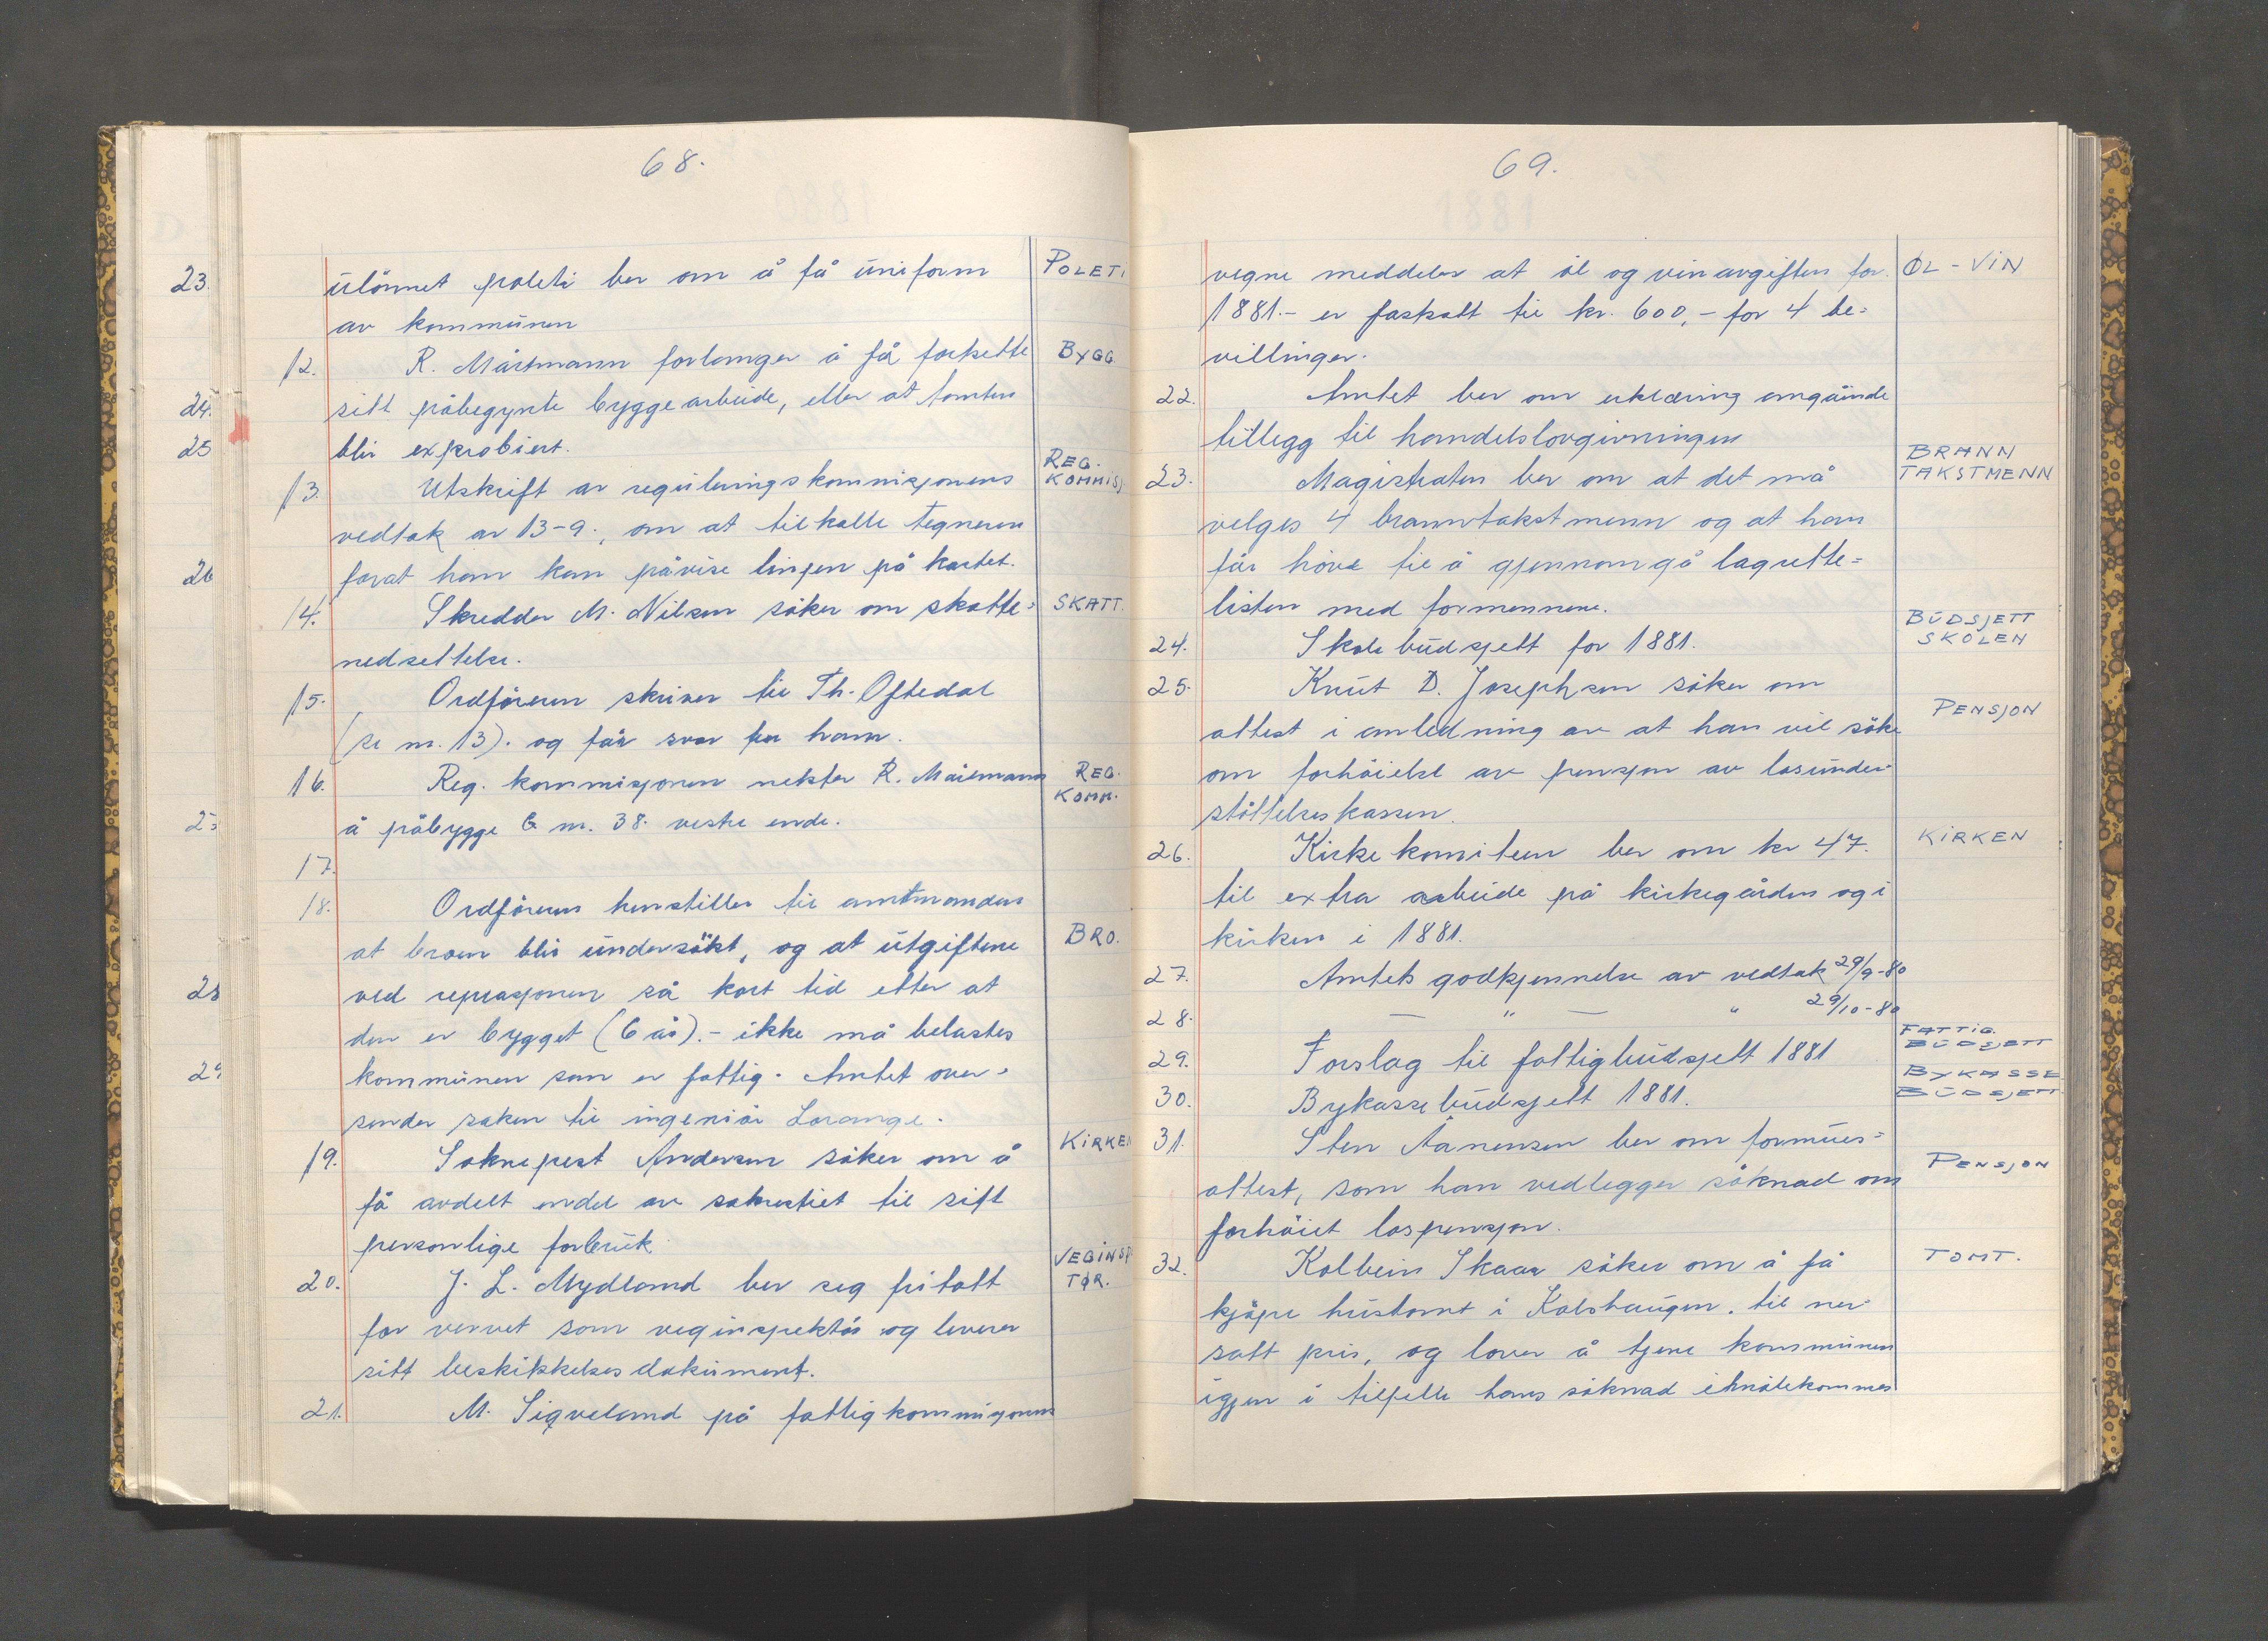 68.
23.
24.
25
26
28
ulönnet politi ber om å få uniform POLETI
av kommunen
12. R. Mårtmann forlanger å få forsette BYGG.
sitt påbegynte byggearbeide, eller at tomten
blir exprobiert.
13. Utskrift av reguleringskommisjonens REG. KOMMISJ.
vedtak av 13-9., om at tilkalle tegneren
forat han kan påvise linjen på kartet.
14. Skredder M. Nilsen söker om skatte= SKATT.
nedsettelse.
15. Ordföreren skriver til Th. Oftedal
(se nr. 13). og får svar fra ham.
16. Reg. kommisjonen nekter R. Mårtmann REG. KOMM.
å påbygge B nr. 38. vestre ende.
17.
18. Ordföreren henstiller til amtmanden
at broen blir undersökt, og at utgiftene BRO.
ved reprasjonen så kort tid etter at
den er bygget (6 år).- ikke må belastes
kommunen som er fattig. Amtet over=
sender saken til ingeniör Lorange.
19. Soknepest Andersen söker om å KIRKEN
få avdelt endel av sakrestiet til sitt
personlige forbruk.
20. J. L. Mydland ber seg fritatt VEGINSP. TØR.
for vervet som veginspektör og leverer
sitt beskikkelsesdokument.
21. M. Sigveland på fattigkommisjonens
69.
vegne meddeler at öl og vinavgiften for ØL - VIN
1881.- er fastsatt til kr. 600,- for 4 be=
villinger.
22. Amtet ber om erklæring angående
tillegg til handelslovgivningen
23. Magistraten ber om at det må BRANN TAKSTMENN
velges 4 branntakstmenn og at han
får höve til å gjennomgå lagrette=
listen med formennene.
24. Skolebudsjett for 1881. BUDSJETT SKOLEN
25. Knut D. Josephsen söker om
attest i anledning av at han vil söke PENSJON
om forhöielse av pensjon av losunder-
stöttelseskassen.
26. Kirkekomiteen ber om kr 47. KIRKEN
til extra arbeide på kirkegården og i
kirken i 1881.
27. Amtets godkjennelse av vedtak 29/9-80
28. — " — " 29/10-80
29. Forslag til fattigbudsjett 1881 FATTIG. BUDSJETT
30. Bykassebudsjett 1881. BYKASSE BUDSJETT
31. Sten Aanensen ber om formues=
attest, som han vedlegger söknad om PENSJON
forhöiet lospensjon.
32. Kolbein Skaar söker om å få TOMT.
kjöpe hustomt i Kolshaugen. til ner-
satt pris, og lover å tjene kommunen
igjen i tilfelle hans söknad imötekommes